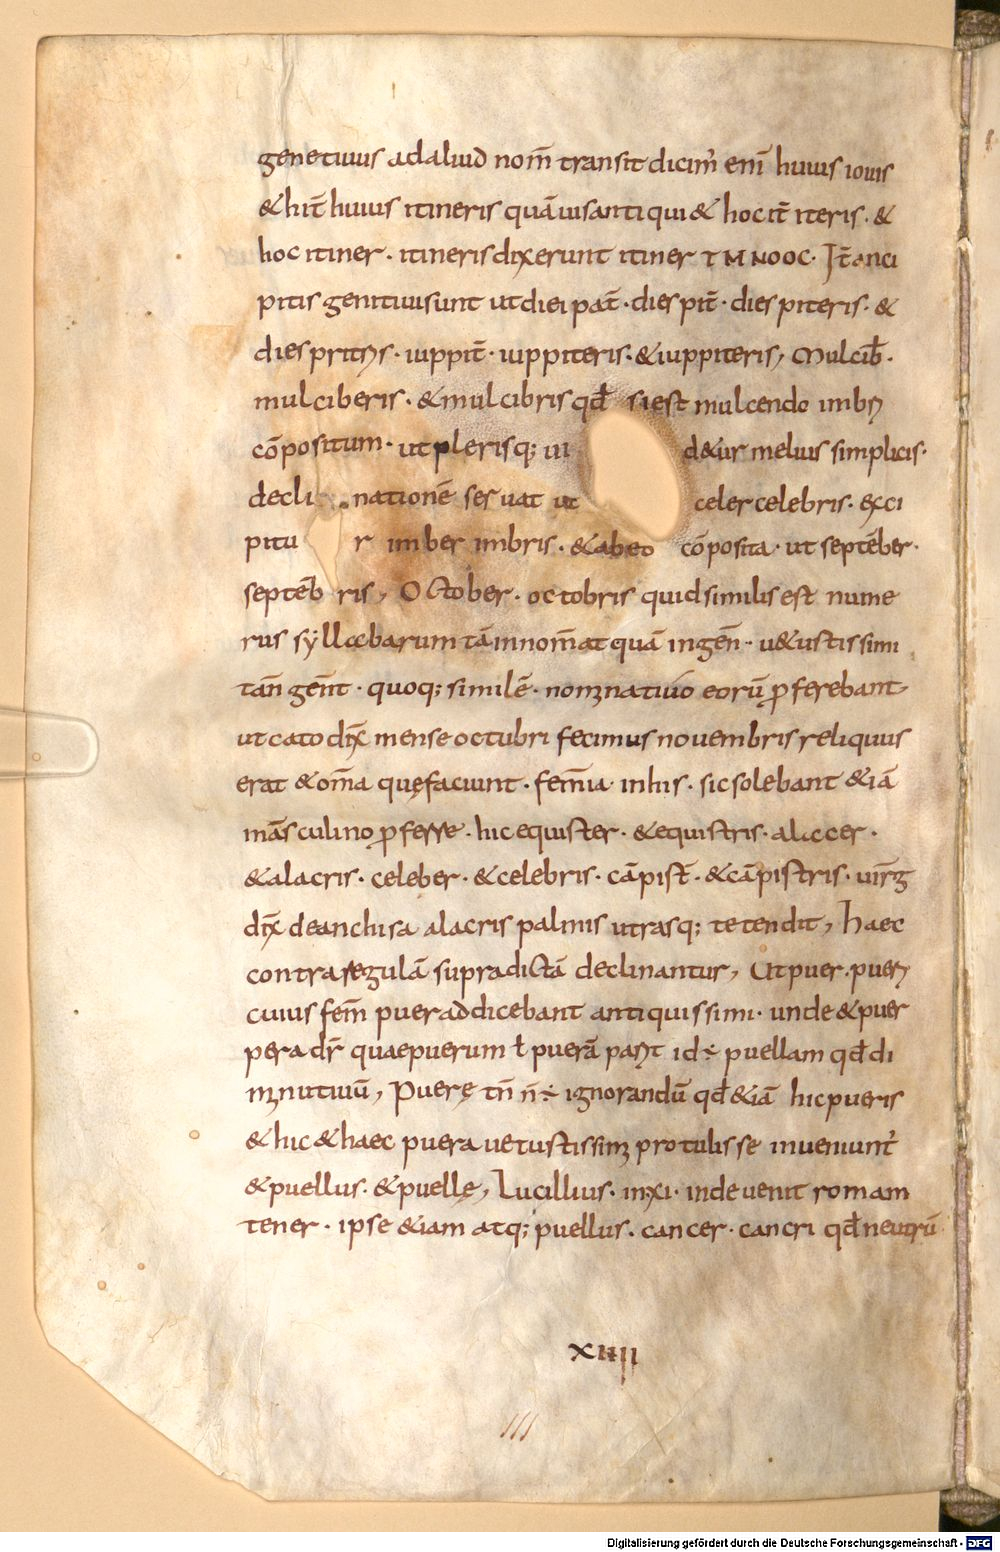 genetiuus ad aliud nom̄ transit dicim᾿ enī huius iouis
& hit̄ huius itineris quā uisanti qui & hoc it̄ iteris · &
hoc itiner · itineris dixerunt itiner TM NOOC · It̄ anci
pitis genitiui sunt ut diei pat̄ · dies pit̄ · dies piteris · &
dies pritris · iuppit̄ · iuppiteris · & iuppiteris, Mulcib̄ ·
mulciberis · & mulcibris qđ si est mulcendo imbri
cōpositum · ut plerisq; ui d&ur melius simplicis ·
decli nationē seruat ut celer celebris · exci
pitu r imber imbris · & ab eo cōposita · ut septēber ·
septēb ris, October · octobris quid similis est nume
rus syllabarum tā in nom̄at quā in geñ · u&ustissimi
tañ geñt · quoq; similē · nominatiuo eorū ꝓferebant,
ut cato dix̄ mense octubri fecimus nouembris reliquus
erat & om̄a quę faciunt · fem̄ia · in his · sic solebant &iā
māsculino ꝓfesse · hic equister · & equistris · alaccer ·
& alacris · celeber · & celebris · cāpist̄ · & cāpistris · uir̄g
dix̄ de anchisa alacris palmis utrasq; tetendit, haec
contra regulā supradictā declinantur, Ut puer · pueri
cuius fem̄ puera dicebant antiquissimi · unde & puer
pera dr̄ quae puerum ƚ puerā parit id ÷ puellam qđ di
minutiuū, Puerę tn̄ n̄ ÷ ignorandū qđ &iā hic pueris
& hic & haec puera uetustissimi protulisse inueniunt᾿
& puellus · & puellę, Lucillius · in xi · inde uenit romam
tener · ipse &iam atq; puellus · cancer · cancri qđ neutrū
XIIII
III
Digitalisierung gefördert durch die Deutsche Forschungsgemeinschaft - DFG